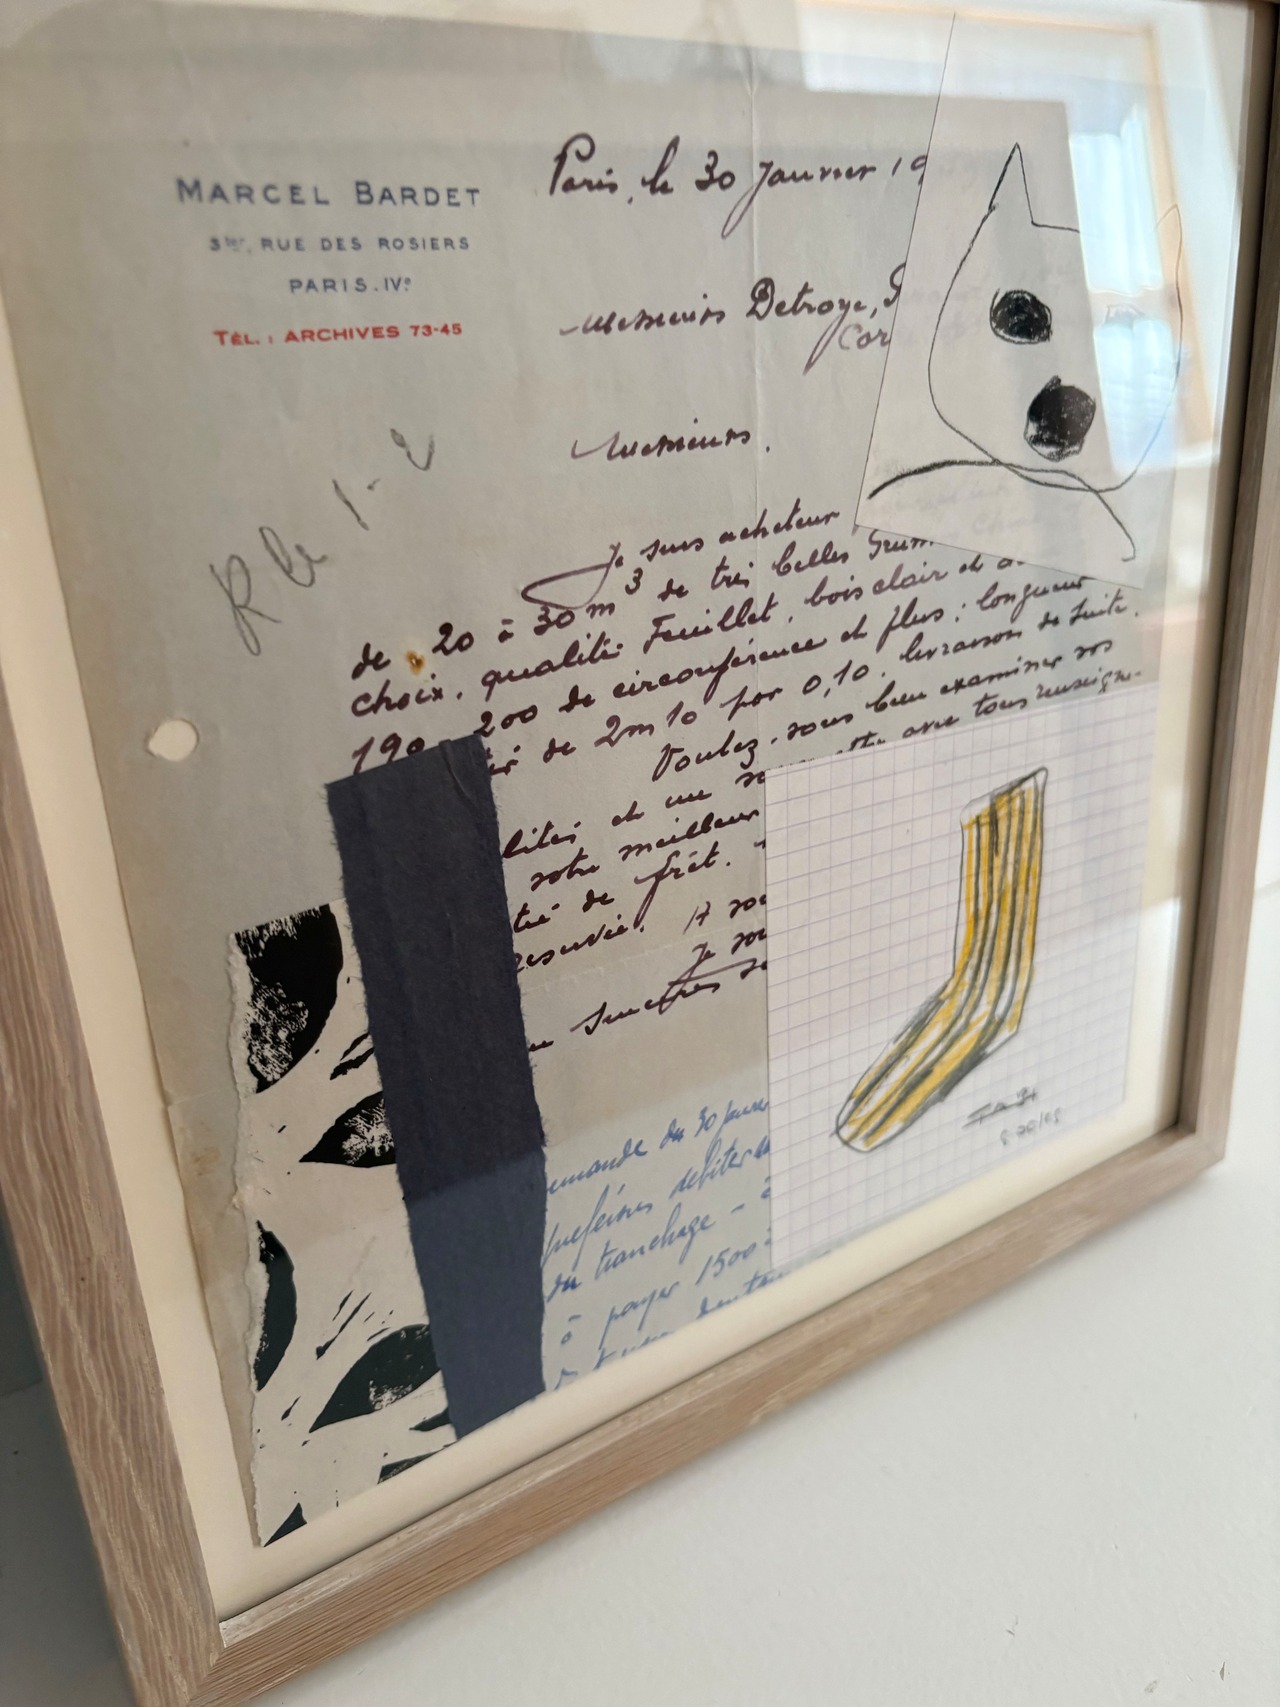 MARCEL BARDET
3ter, RUE DES ROSIERS
PARIS. IVe
TÉL. : ARCHIVES 73-45
Paris, le 30 Janvier 19
Messieurs Detroye, S
Cor
Messieurs.
Je suis acheteur
de 20 à 30 m3 de très belles Grum
choix, qualité Feuillet, bois clair et d
190 200 de circonférence et plus; longueur
de 2m10 par 0,10. livraison de suite.
Voulez-vous bien examiner vos
lités et me avec tous renseigne-
votre meilleur
tié de frêt.
reservée. A vou
Je vou
sincères
emande du 30 janv
préférons débiter
du tranchage - à
à payer 1500